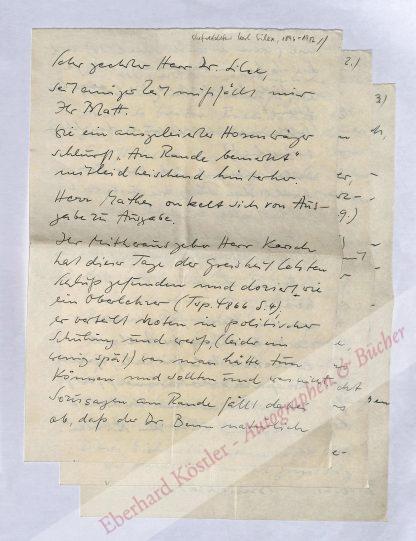 Chefredakteur Karl Silex, 1896-1982 /)
Sehr geehrter Herr Dr. Silex,
seit einiger Zeit mißfällt mir
Ihr Blatt.
Wie ein ausgeleierter Hosenträger
schlurft „Am Rande bemerkt"
mitleidheischend hinterher.
Herr Mathes onkelt sich von Aus-
gabe zu Ausgabe.
Ihr Mitherausgeber Herr Karsch
hat dieser Tage der Greisheit letzten
Schluß gefunden und doziert wie
ein Oberlehrer (Tsp. 4866 S. 4),
er verteilt Noten in politischer
Schulung und weiß, (leider ein
wenig spät) was man hätte tun
können und sollten und was nicht
Sozusagen am Rande fällt dabei
ab, daß der Dr. Benn natürlich
2.)
3)
Eberhard Köstler - Autographen & Bücher